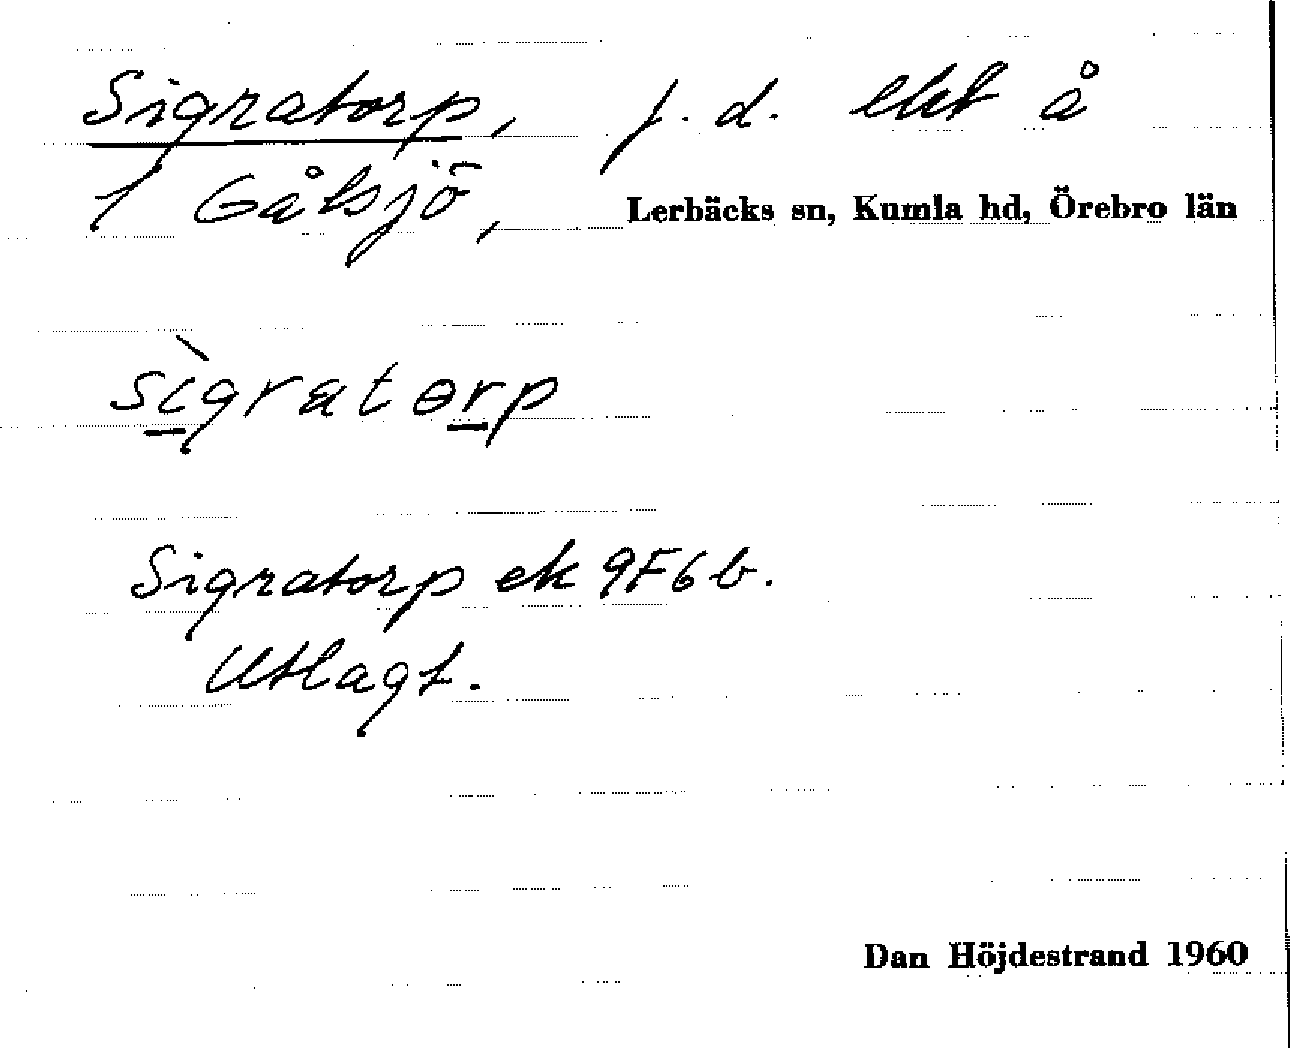 Sigratorp, f. d. lht å
1 Gålsjö, Lerbäcks sn, Kumla hd, Örebro län
sìgratorp
Sigratorp ek 9F6b.
Utlagt.
Dan Höjdestrand 1960